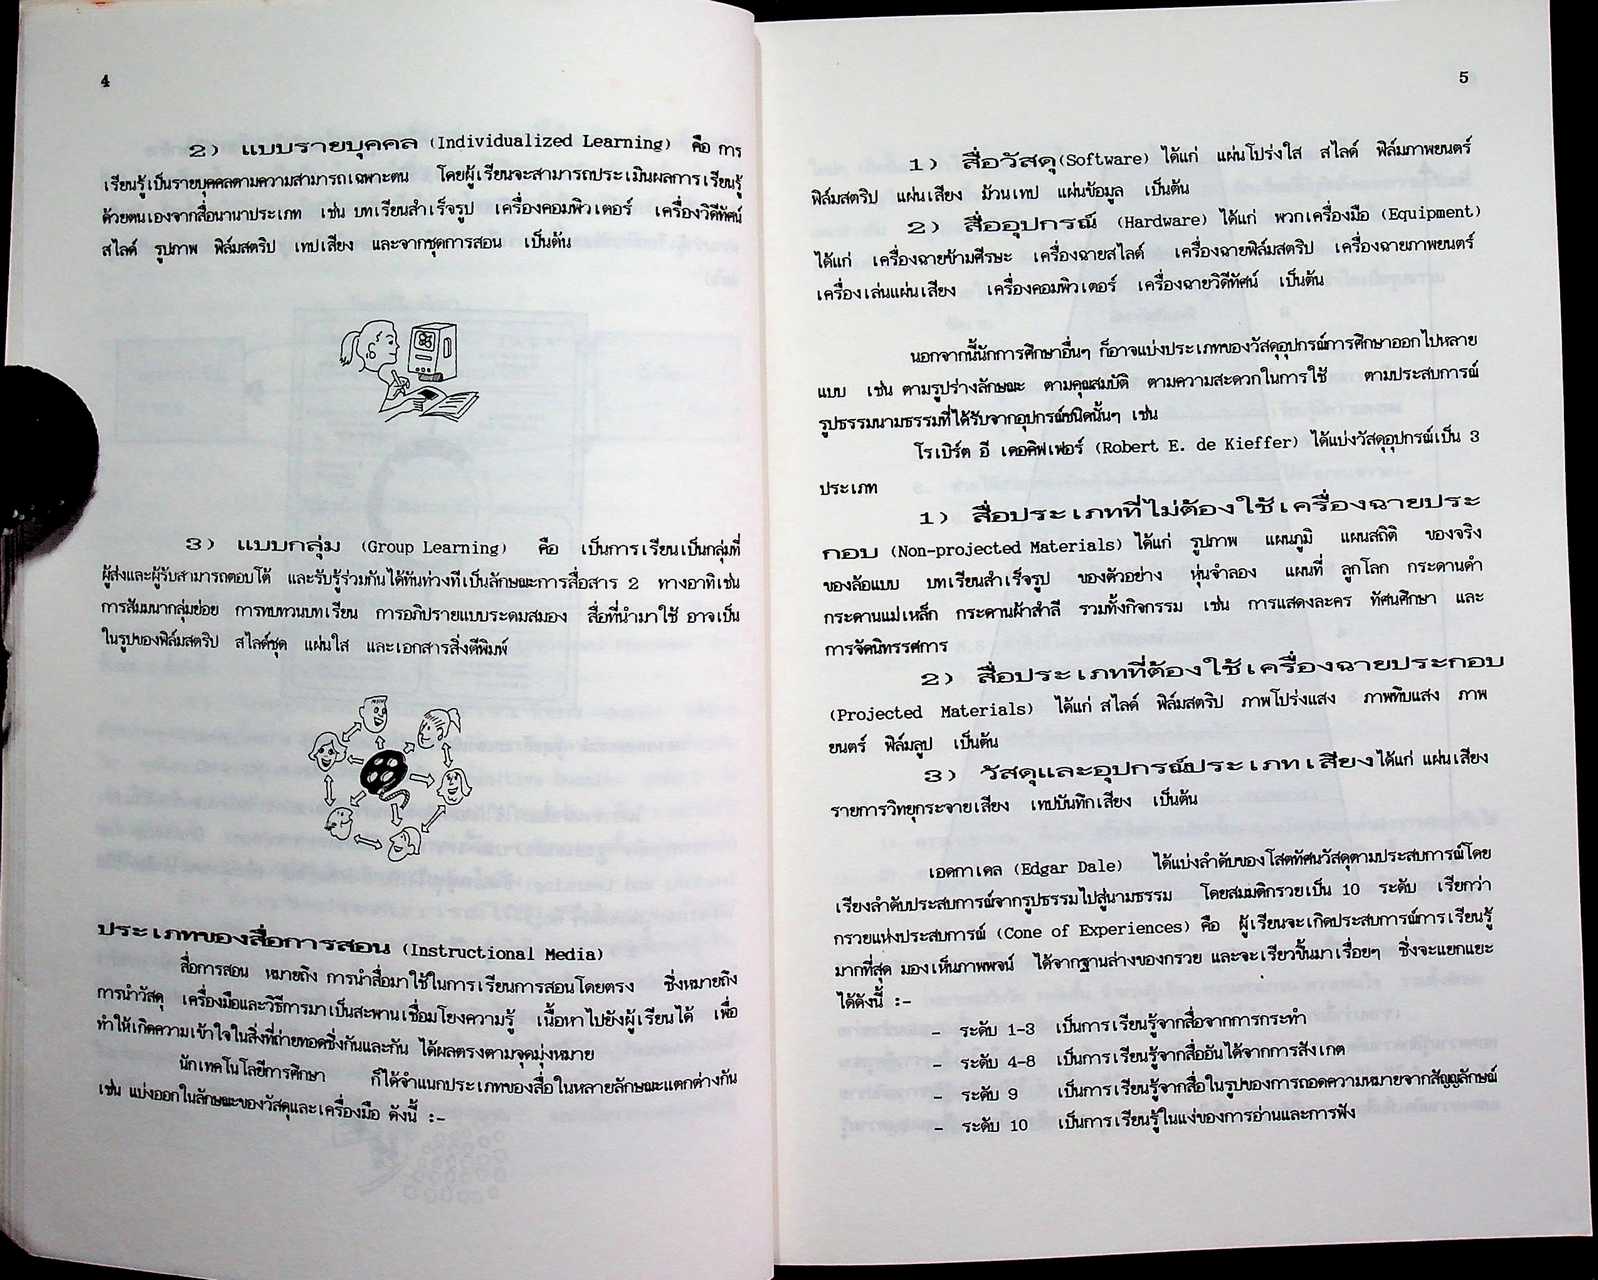 4
2) แบบรายบุคคล (Individualized Learning) คือ การ
เรียนรู้เป็นรายบุคคลตามความสามารถเฉพาะตน โดยผู้เรียนจะสามารถประเมินผลการเรียนรู้
ด้วยตนเองจากสื่อนานาประเภท เช่น บทเรียนสำเร็จรูป เครื่องคอมพิวเตอร์ เครื่องวิดีทัศน์
สไลด์ รูปภาพ ฟิล์มสตริป เทปเสียง และจากชุดการสอน เป็นต้น
3) แบบกลุ่ม (Group Learning) คือ เป็นการเรียนเป็นกลุ่มที่
ผู้ส่งและผู้รับสามารถตอบโต้ และรับรู้ร่วมกันได้ทันท่วงทีเป็นลักษณะการสื่อสาร 2 ทางอาทิเช่น
การสัมมนากลุ่มย่อย การทบทวนบทเรียน การอภิปรายแบบระดมสมอง สื่อที่นำมาใช้ อาจเป็น
ในรูปของฟิล์มสตริป สไลด์ชุด แผ่นใส และเอกสารสิ่งตีพิมพ์
ประเภทของสื่อการสอน (Instructional Media)
สื่อการสอน หมายถึง การนำสื่อมาใช้ในการเรียนการสอนโดยตรง ซึ่งหมายถึง
การนำวัสดุ เครื่องมือและวิธีการมาเป็นสะพานเชื่อมโยงความรู้ เนื้อหาไปยังผู้เรียนได้ เพื่อ
ทำให้เกิดความเข้าใจในสิ่งที่ถ่ายทอดซึ่งกันและกัน ได้ผลตรงตามจุดมุ่งหมาย
นักเทคโนโลยีการศึกษา ก็ได้จำแนกประเภทของสื่อในหลายลักษณะแตกต่างกัน
เช่น แบ่งออกในลักษณะของวัสดุและเครื่องมือ ดังนี้ :-
5
1) สื่อวัสดุ(Software) ได้แก่ แผ่นโปร่งใส สไลด์ ฟิล์มภาพยนตร์
ฟิล์มสตริป แผ่นเสียง ม้วนเทป แผ่นข้อมูล เป็นต้น
2) สื่ออุปกรณ์ (Hardware) ได้แก่ พวกเครื่องมือ (Equipment)
ได้แก่ เครื่องฉายข้ามศีรษะ เครื่องฉายสไลด์ เครื่องฉายฟิล์มสตริป เครื่องฉายภาพยนตร์
เครื่องเล่นแผ่นเสียง เครื่องคอมพิวเตอร์ เครื่องฉายวิดีทัศน์ เป็นต้น
นอกจากนี้นักการศึกษาอื่นๆ ก็อาจแบ่งประเภทของวัสดุอุปกรณ์การศึกษาออกไปหลาย
แบบ เช่น ตามรูปร่างลักษณะ ตามคุณสมบัติ ตามความสะดวกในการใช้ ตามประสบการณ์
รูปธรรมนามธรรมที่ได้รับจากอุปกรณ์ชนิดนั้นๆ เช่น
โรเบิร์ต อี เดอคิฟเฟอร์ (Robert E. de Kieffer) ได้แบ่งวัสดุอุปกรณ์เป็น 3
ประเภท
1) สื่อประเภทที่ไม่ต้องใช้เครื่องฉายประ
กอบ (Non-projected Materials) ได้แก่ รูปภาพ แผนภูมิ แผนสถิติ ของจริง
ของล้อแบบ บทเรียนสำเร็จรูป ของตัวอย่าง หุ่นจำลอง แผนที่ ลูกโลก กระดานดำ
กระดานแม่เหล็ก กระดานผ้าสำลี รวมทั้งกิจกรรม เช่น การแสดงละคร ทัศนศึกษา และ
การจัดนิทรรศการ
2) สื่อประเภทที่ต้องใช้เครื่องฉายประกอบ
(Projected Materials) ได้แก่ สไลด์ ฟิล์มสตริป ภาพโปร่งแสง ภาพทึบแสง ภาพ
ยนตร์ ฟิล์มลูป เป็นต้น
3) วัสดุและอุปกรณ์ประเภทเสียงได้แก่ แผ่นเสียง
รายการวิทยุกระจายเสียง เทปบันทึกเสียง เป็นต้น
เอดกาเดล (Edgar Dale) ได้แบ่งลำดับของโสตทัศนวัสดุตามประสบการณ์โดย
เรียงลำดับประสบการณ์จากรูปธรรมไปสู่นามธรรม โดยสมมติกรวยเป็น 10 ระดับ เรียกว่า
กรวยแห่งประสบการณ์ (Cone of Experiences) คือ ผู้เรียนจะเกิดประสบการณ์การเรียนรู้
มากที่สุด มองเห็นภาพพจน์ ได้จากฐานล่างของกรวย และจะเรียวขึ้นมาเรื่อยๆ ซึ่งจะแยกแยะ
ได้ดังนี้ :-
- ระดับ 1-3 เป็นการเรียนรู้จากสื่อจากการกระทำ
- ระดับ 4-8 เป็นการเรียนรู้จากสื่ออันได้จากการสังเกต
- ระดับ 9 เป็นการเรียนรู้จากสื่อในรูปของการถอดความหมายจากสัญญลักษณ์
- ระดับ 10 เป็นการเรียนรู้ในแง่ของการอ่านและการฟัง